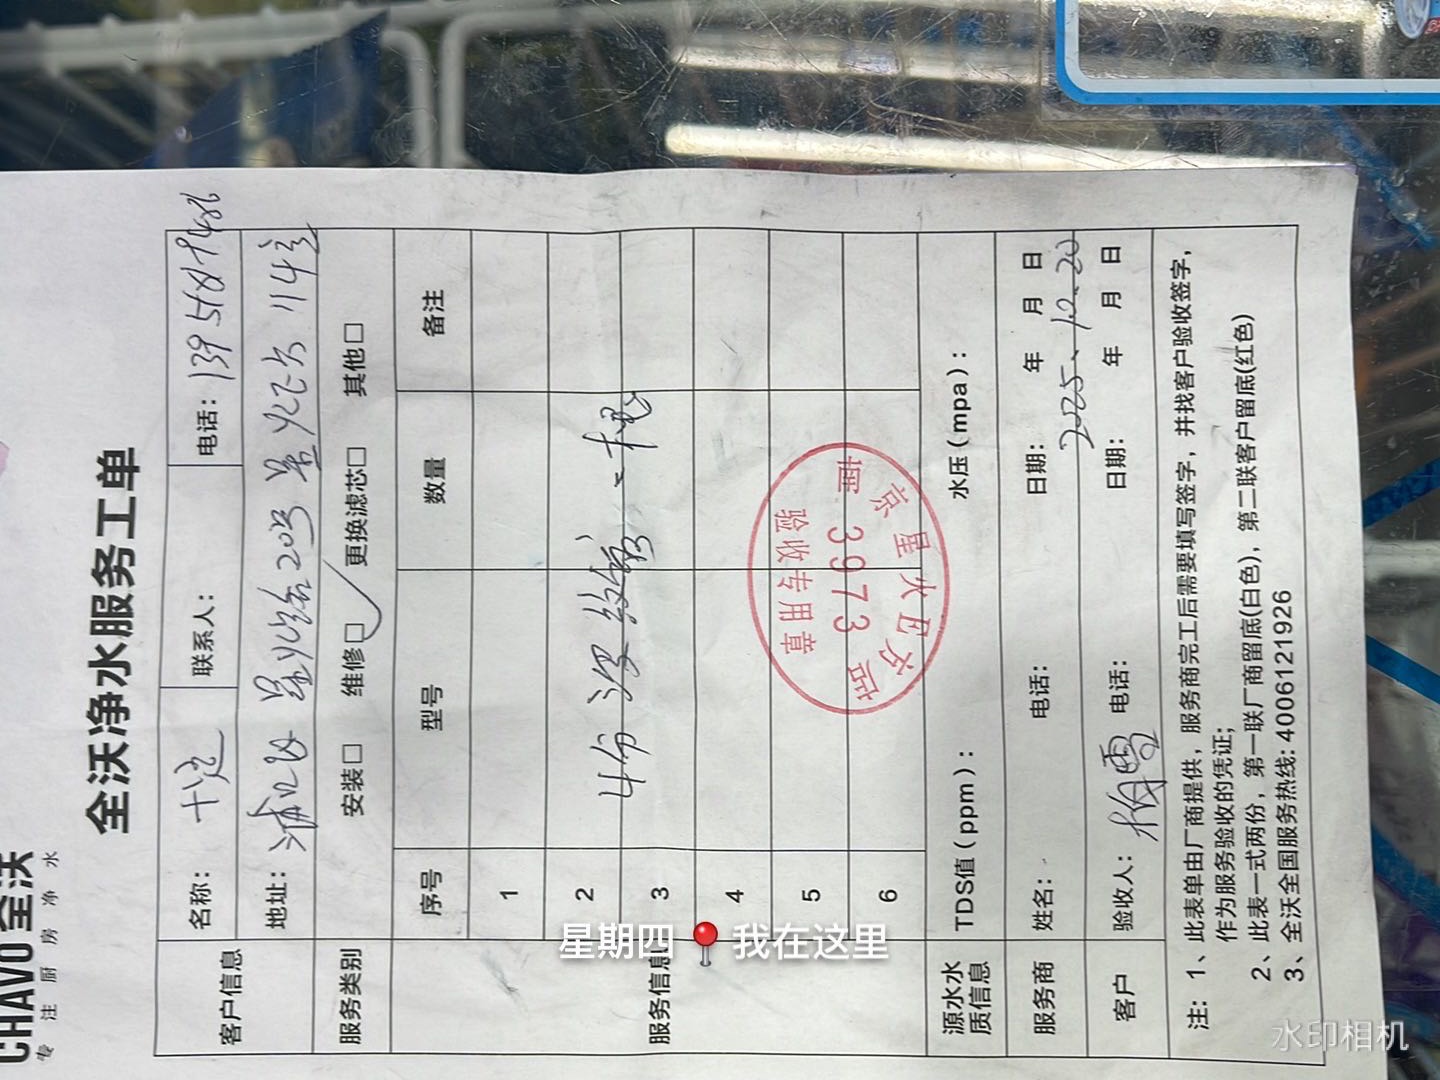 CHAVO全沃
专注厨房净水
全沃净水服务工单
客户信息
名称：
联系人：
电话：139
地址：浦口区 星火路20号 星火 114室
服务类别
安装□ 维修□ 更换滤芯□ 其他□
服务信息
序号 型号 数量 备注
1
2
3 4分
4
5
6
南京星火北方店
3973
验收专用章
源水水质信息
TDS值(ppm)：
水压(mpa)：
服务商
姓名：
电话：
日期： 年 月 日
2025.10.20
客户
验收人：
电话：
日期： 年 月 日
注：1、此表单由厂商提供，服务商完工后需要填写签字，并找客户验收签字，
作为服务验收的凭证；
2、此表一式两份，第一联厂商留底(白色)，第二联客户留底(红色)
3、全沃全国服务热线: 4006121926
星期四 我在这里
水印相机